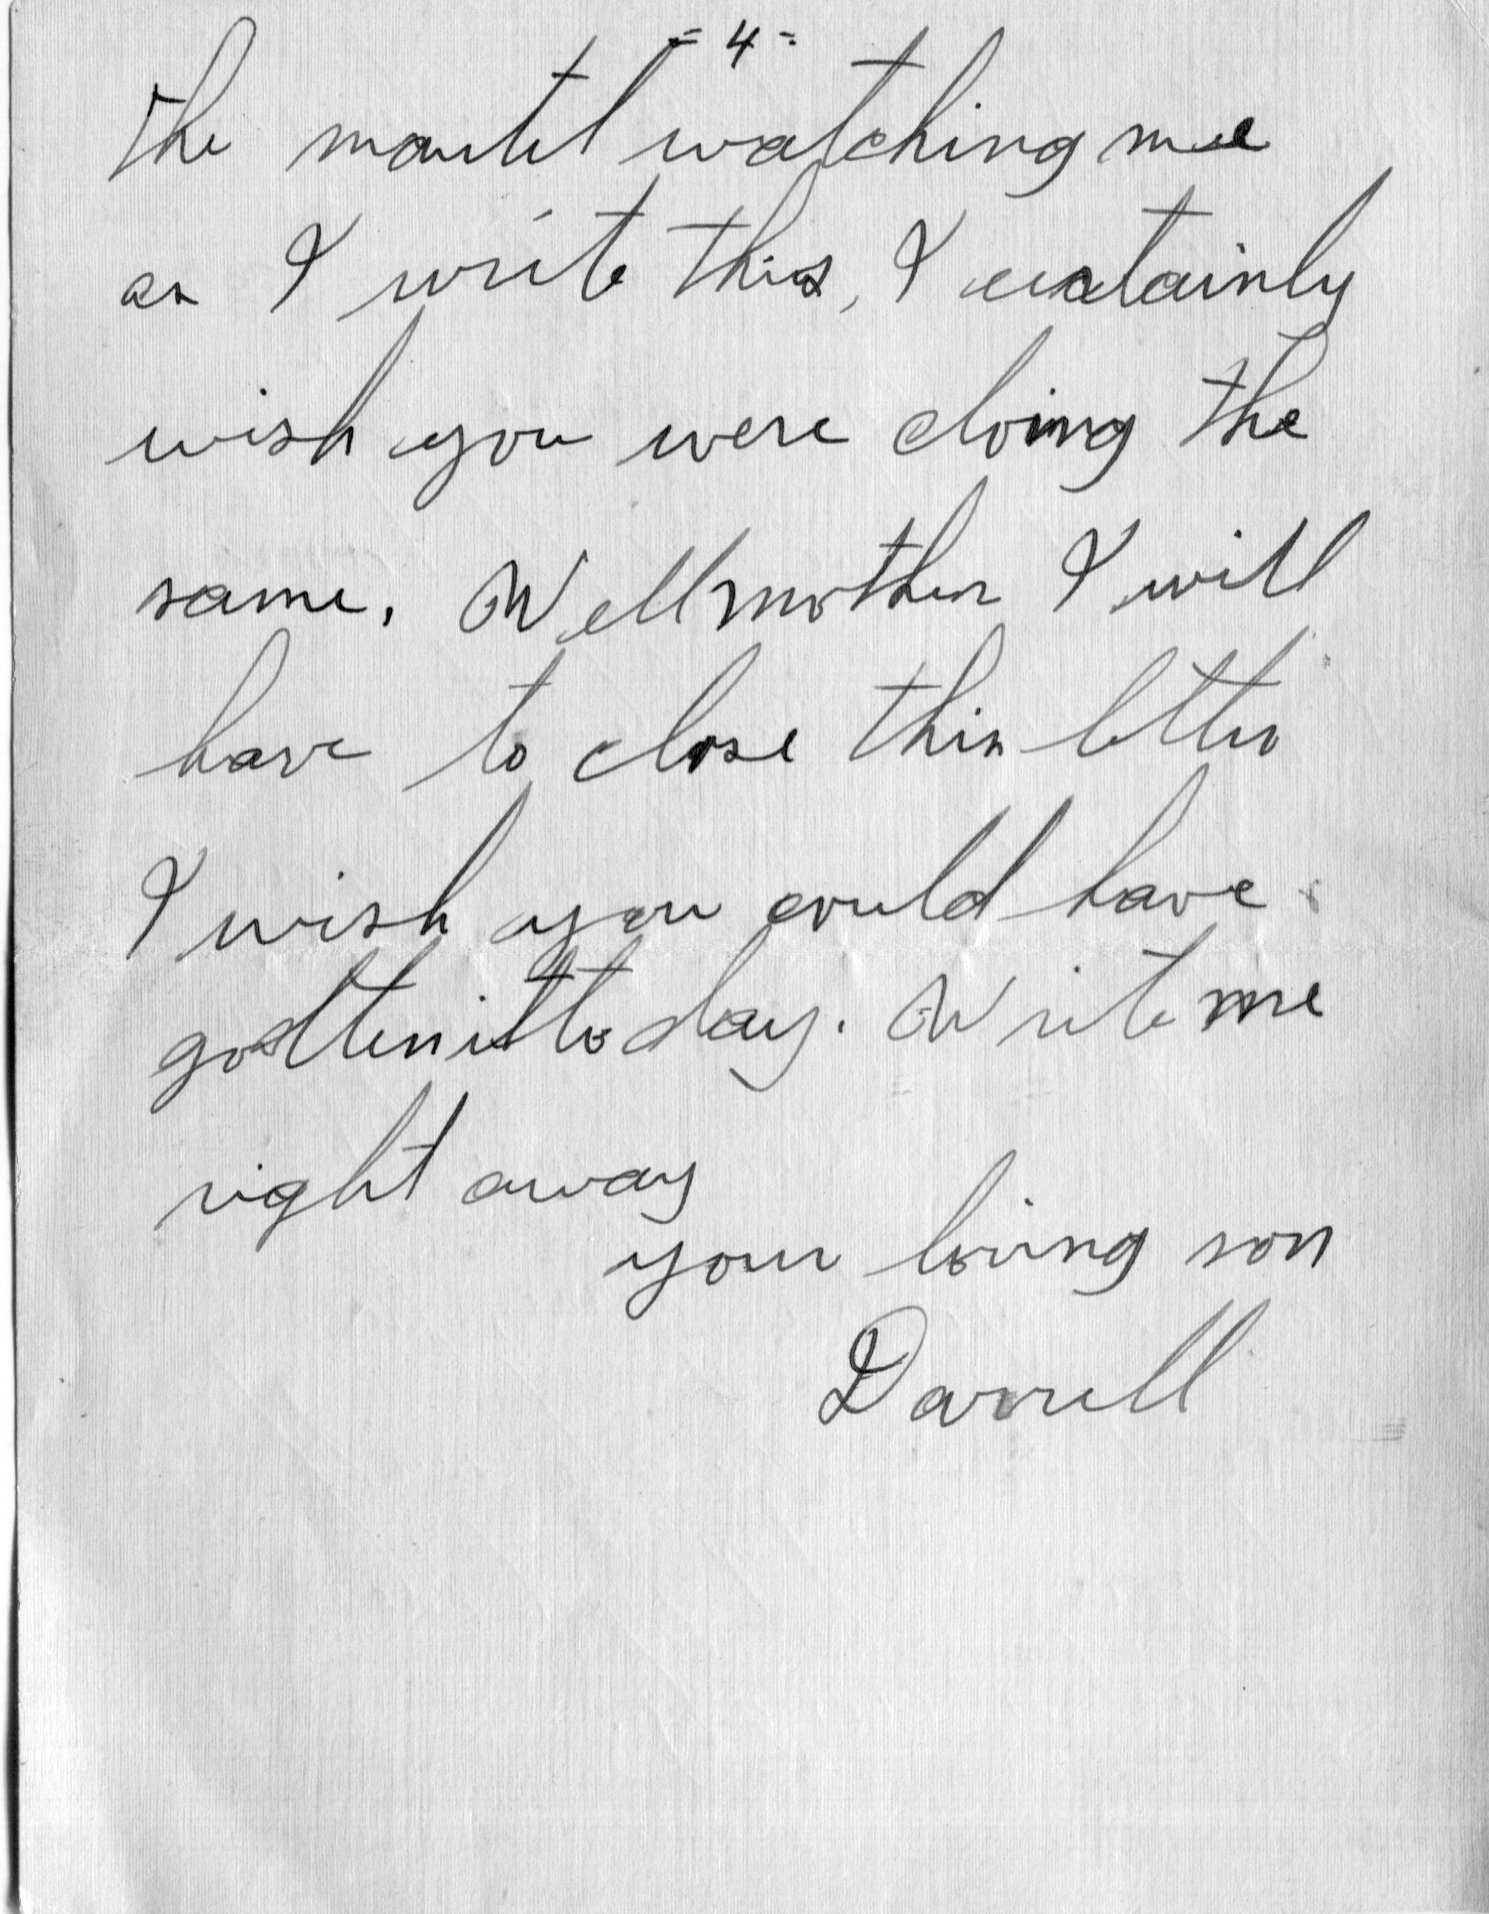 = 4 =
The mantel watching me
as I write this, I certainly
wish you were doing the
same. Well mother I will
have to close this letter
I wish you could have
gotten it to day. Write me
right away
your loving son
Darrell